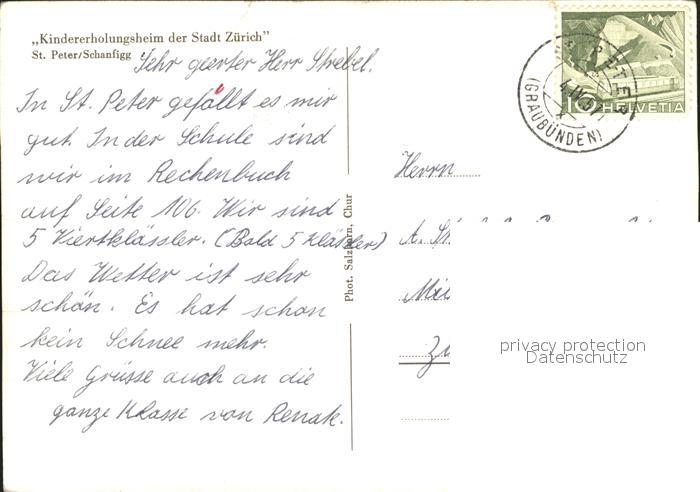 „Kindererholungsheim der Stadt Zürich”
St. Peter/Schanfigg
Sehr geerter Herr Strebel.
In St. Peter gefällt es mir
gut. In der Schule sind
wir im Rechenbuch
auf Seite 106. Wir sind
5 Viertklässler. (Bald 5 Klässler)
Das Wetter ist sehr
schön. Es hat schon
kein Schnee mehr.
Viele Grüsse auch an die
ganze Klasse von Renate.
Phot. Salzborn, Chur
10 HELVETIA
ST. PETER
(GRAUBÜNDEN)
Herrn
A. St
privacy protection
Datenschutz